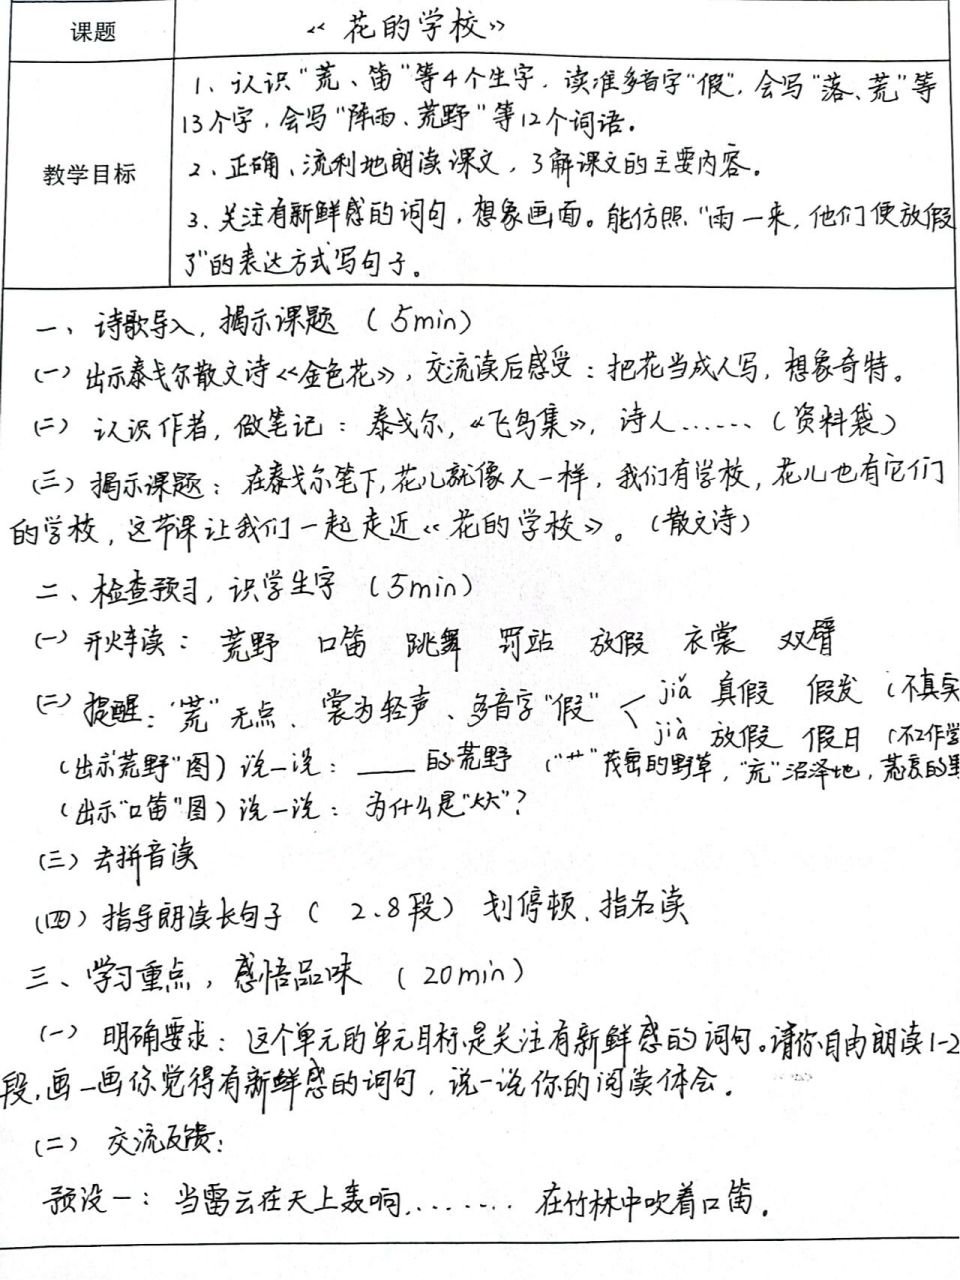 课题
《花的学校》
教学目标
1、认识"荒、笛"等4个生字，读准多音字"假"，会写"落、荒"等
13个字，会写"阵雨、荒野"等12个词语。
2、正确、流利地朗读课文，了解课文的主要内容。
3、关注有新鲜感的词句，想象画面。能仿照"雨一来，他们便放假
了"的表达方式写句子。
一、诗歌导入，揭示课题（5min）
(一) 出示泰戈尔散文诗《金色花》，交流读后感受：把花当成人写，想象奇特。
(二) 认识作者，做笔记：泰戈尔，《飞鸟集》，诗人……（资料袋）
(三) 揭示课题：在泰戈尔笔下，花儿就像人一样，我们有学校，花儿也有它们
的学校，这节课让我们一起走近《花的学校》。（散文诗）
二、检查预习，识学生字（5min）
(一) 开火车读：荒野 口笛 跳舞 罚站 放假 衣裳 双臂
(二) 提醒："荒"无点、裳为轻声、多音字"假" < jiǎ 真假 假发（不真实
jià 放假 假日（不工作学
（出示"荒野"图）说一说：____的荒野（"艹"茂密的野草，"巟"沼泽地，
（出示"口笛"图）说一说：为什么是"𥫗"？
(三) 去拼音读
(四) 指导朗读长句子（2、8段）划停顿、指名读
三、学习重点，感悟品味（20min）
(一) 明确要求：这个单元的单元目标是关注有新鲜感的词句。请你自由朗读1-2
段，画一画你觉得有新鲜感的词句，说一说你的阅读体会。
(二) 交流反馈：
预设一：当雷云在天上轰响，……… 在竹林中吹着口笛。